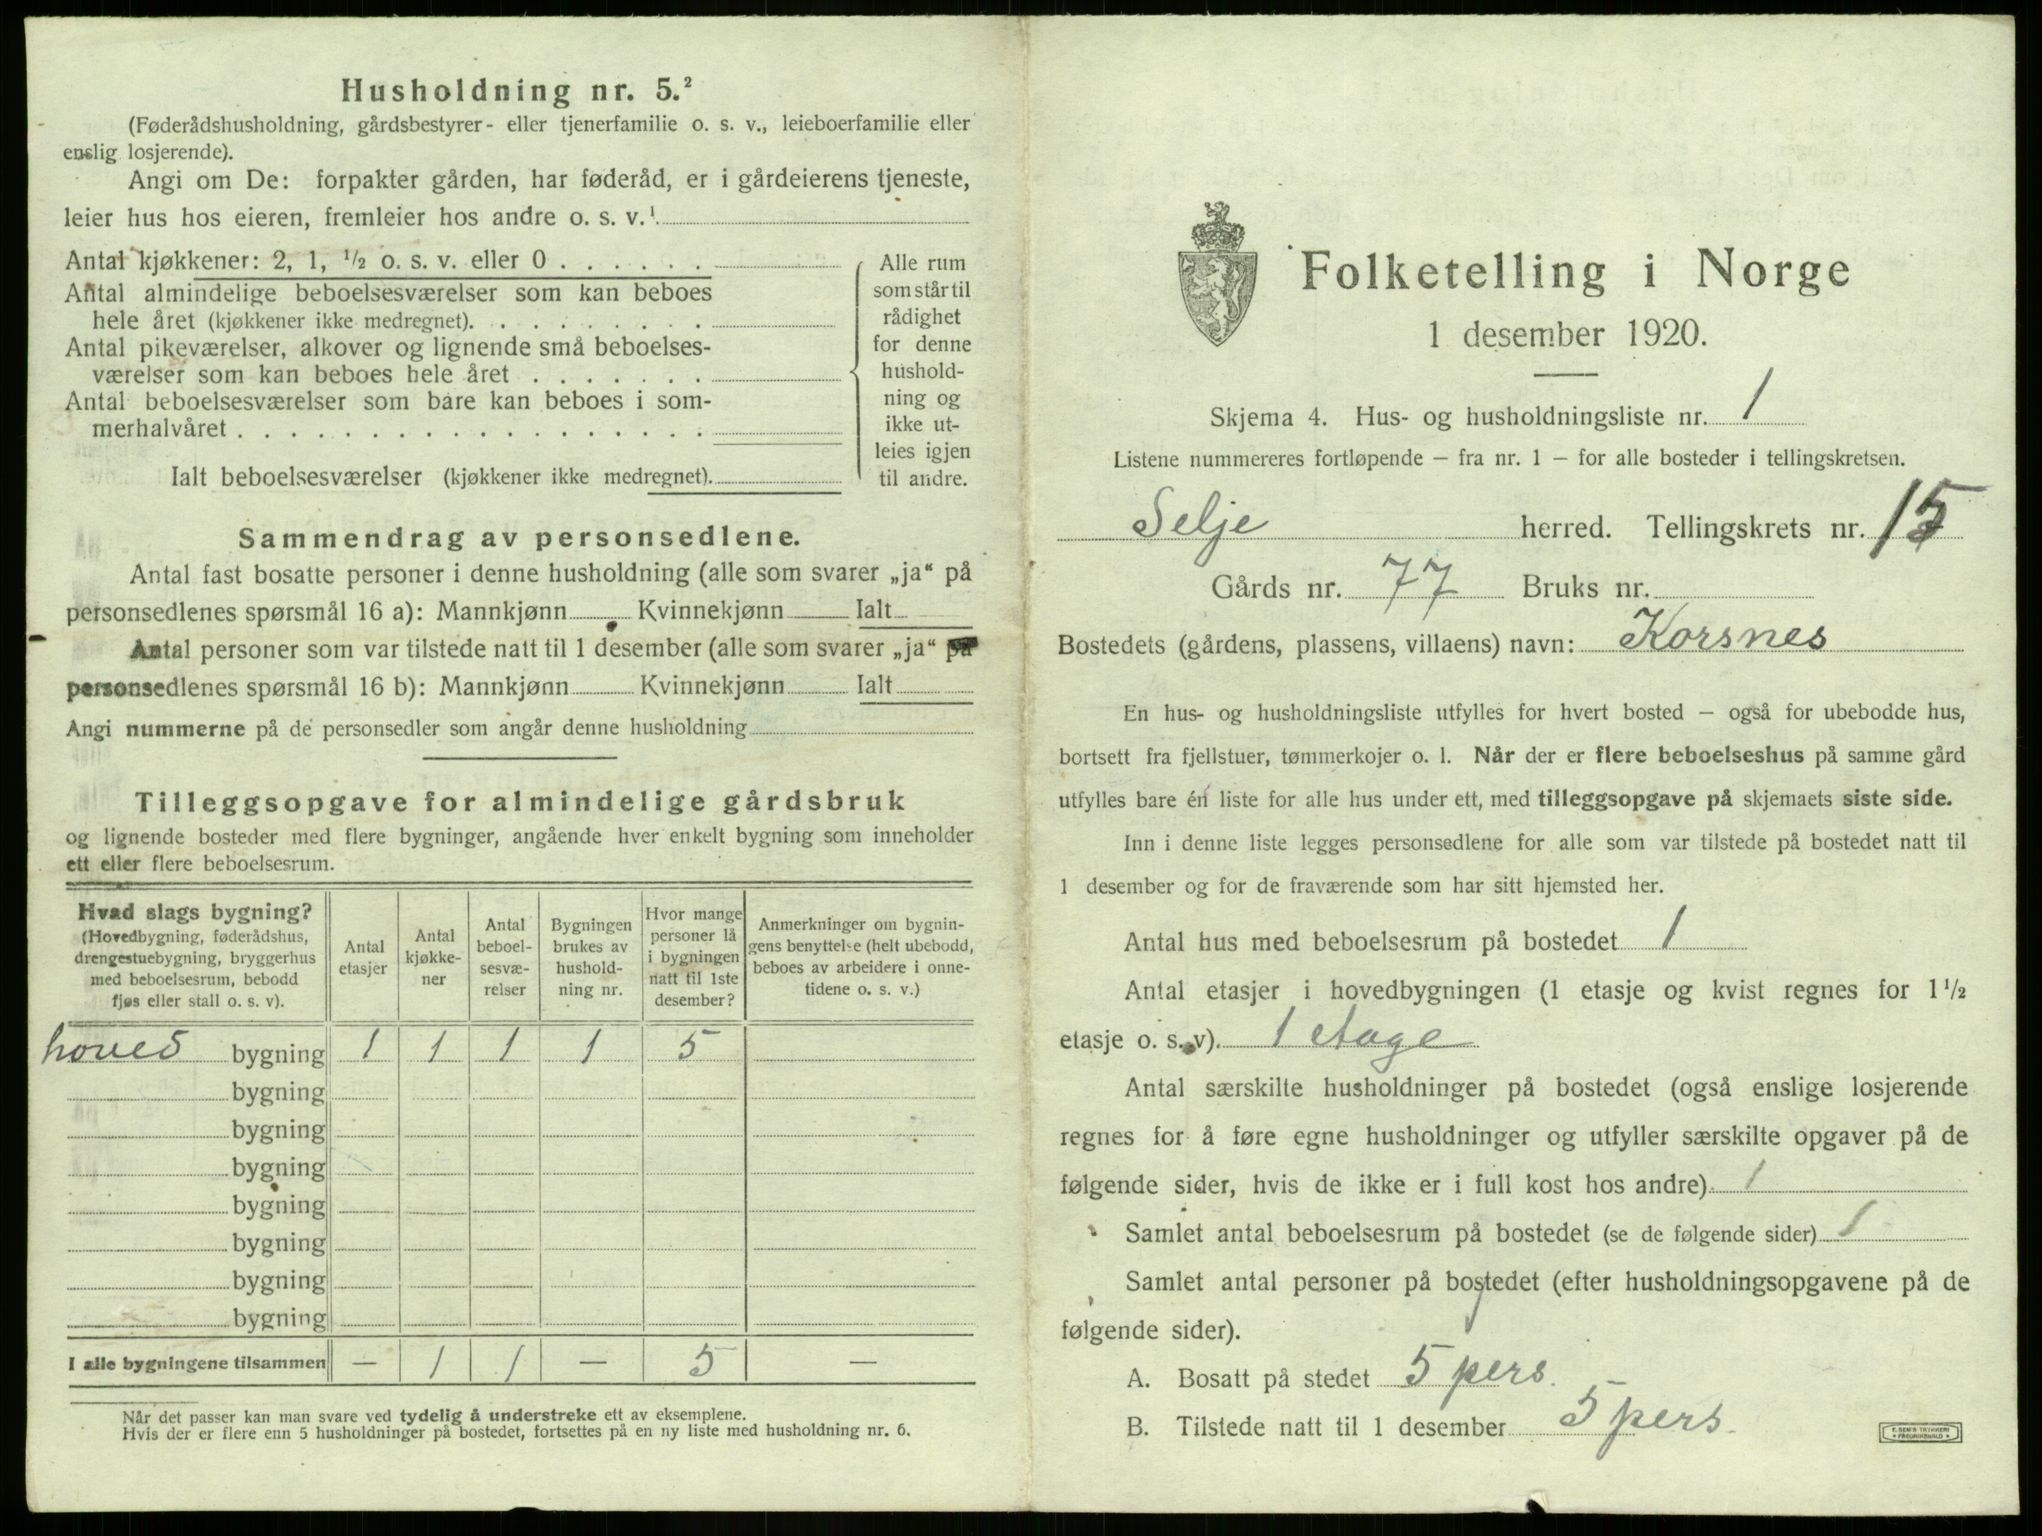 Husholdning nr. 5.²
(Føderådshusholdning, gårdsbestyrer- eller tjenerfamilie o. s. v., leieboerfamilie eller
enslig losjerende).
Angi om De: forpakter gården, har føderåd, er i gårdeierens tjeneste,
leier hus hos eieren, fremleier hos andre o. s. v.¹
Antal kjøkkener: 2, 1, ½ o. s. v. eller 0
Antal almindelige beboelsesværelser som kan beboes
hele året (kjøkkener ikke medregnet).
Antal pikeværelser, alkover og lignende små beboelses-
værelser som kan beboes hele året
Antal beboelsesværelser som bare kan beboes i som-
merhalvåret
Ialt beboelsesværelser (kjøkkener ikke medregnet).
Alle rum
som står til
rådighet
for denne
hushold-
ning og
ikke ut-
leies igjen
til andre.
Sammendrag av personsedlene.
Antal fast bosatte personer i denne husholdning (alle som svarer „ja“ på
personsedlenes spørsmål 16 a): Mannkjønn Kvinnekjønn Ialt
Antal personer som var tilstede natt til 1 desember (alle som svarer „ja“ på
personsedlenes spørsmål 16 b): Mannkjønn Kvinnekjønn Ialt
Angi nummerne på de personsedler som angår denne husholdning
Tilleggsopgave for almindelige gårdsbruk
og lignende bosteder med flere bygninger, angående hver enkelt bygning som inneholder
ett eller flere beboelsesrum.
Hvad slags bygning?
(Hovedbygning, føderådshus,
drengestuebygning, bryggerhus
med beboelsesrum, bebodd
fjøs eller stall o. s. v).
Antal
etasjer
Antal
kjøkke-
ner
Antal
beboel-
sesvæ-
relser
Bygningen
brukes av
hushold-
ning nr.
Hvor mange
personer lå
i bygningen
natt til 1ste
desember?
Anmerkninger om bygnin-
gens benyttelse (helt ubebodd,
beboes av arbeidere i onne-
tidene o. s. v.)
hoved bygning 1 1 1 1 5
bygning
bygning
bygning
bygning
bygning
bygning
bygning
I alle bygningene tilsammen — 1 1 — 5 —
Når det passer kan man svare ved tydelig å understreke ett av eksemplene.
Hvis der er flere enn 5 husholdninger på bostedet, fortsettes på en ny liste med husholdning nr. 6.
Folketelling i Norge
1 desember 1920.
Skjema 4. Hus- og husholdningsliste nr. 1
Listene nummereres fortløpende — fra nr. 1 — for alle bosteder i tellingskretsen.
Selje herred. Tellingskrets nr. 15
Gårds nr. 77 Bruks nr.
Bostedets (gårdens, plassens, villaens) navn: Korsnes
En hus- og husholdningsliste utfylles for hvert bosted — også for ubebodde hus,
bortsett fra fjellstuer, tømmerkojer o. l. Når der er flere beboelseshus på samme gård
utfylles bare én liste for alle hus under ett, med tilleggsopgave på skjemaets siste side.
Inn i denne liste legges personsedlene for alle som var tilstede på bostedet natt til
1 desember og for de fraværende som har sitt hjemsted her.
Antal hus med beboelsesrum på bostedet 1
Antal etasjer i hovedbygningen (1 etasje og kvist regnes for 1 ½
etasje o. s. v). 1 etage
Antal særskilte husholdninger på bostedet (også enslige losjerende
regnes for å føre egne husholdninger og utfyller særskilte opgaver på de
følgende sider, hvis de ikke er i full kost hos andre) 1
Samlet antal beboelsesrum på bostedet (se de følgende sider) 1
Samlet antal personer på bostedet (efter husholdningsopgavene på de
følgende sider).
A. Bosatt på stedet 5 pers.
B. Tilstede natt til 1 desember 5 pers.